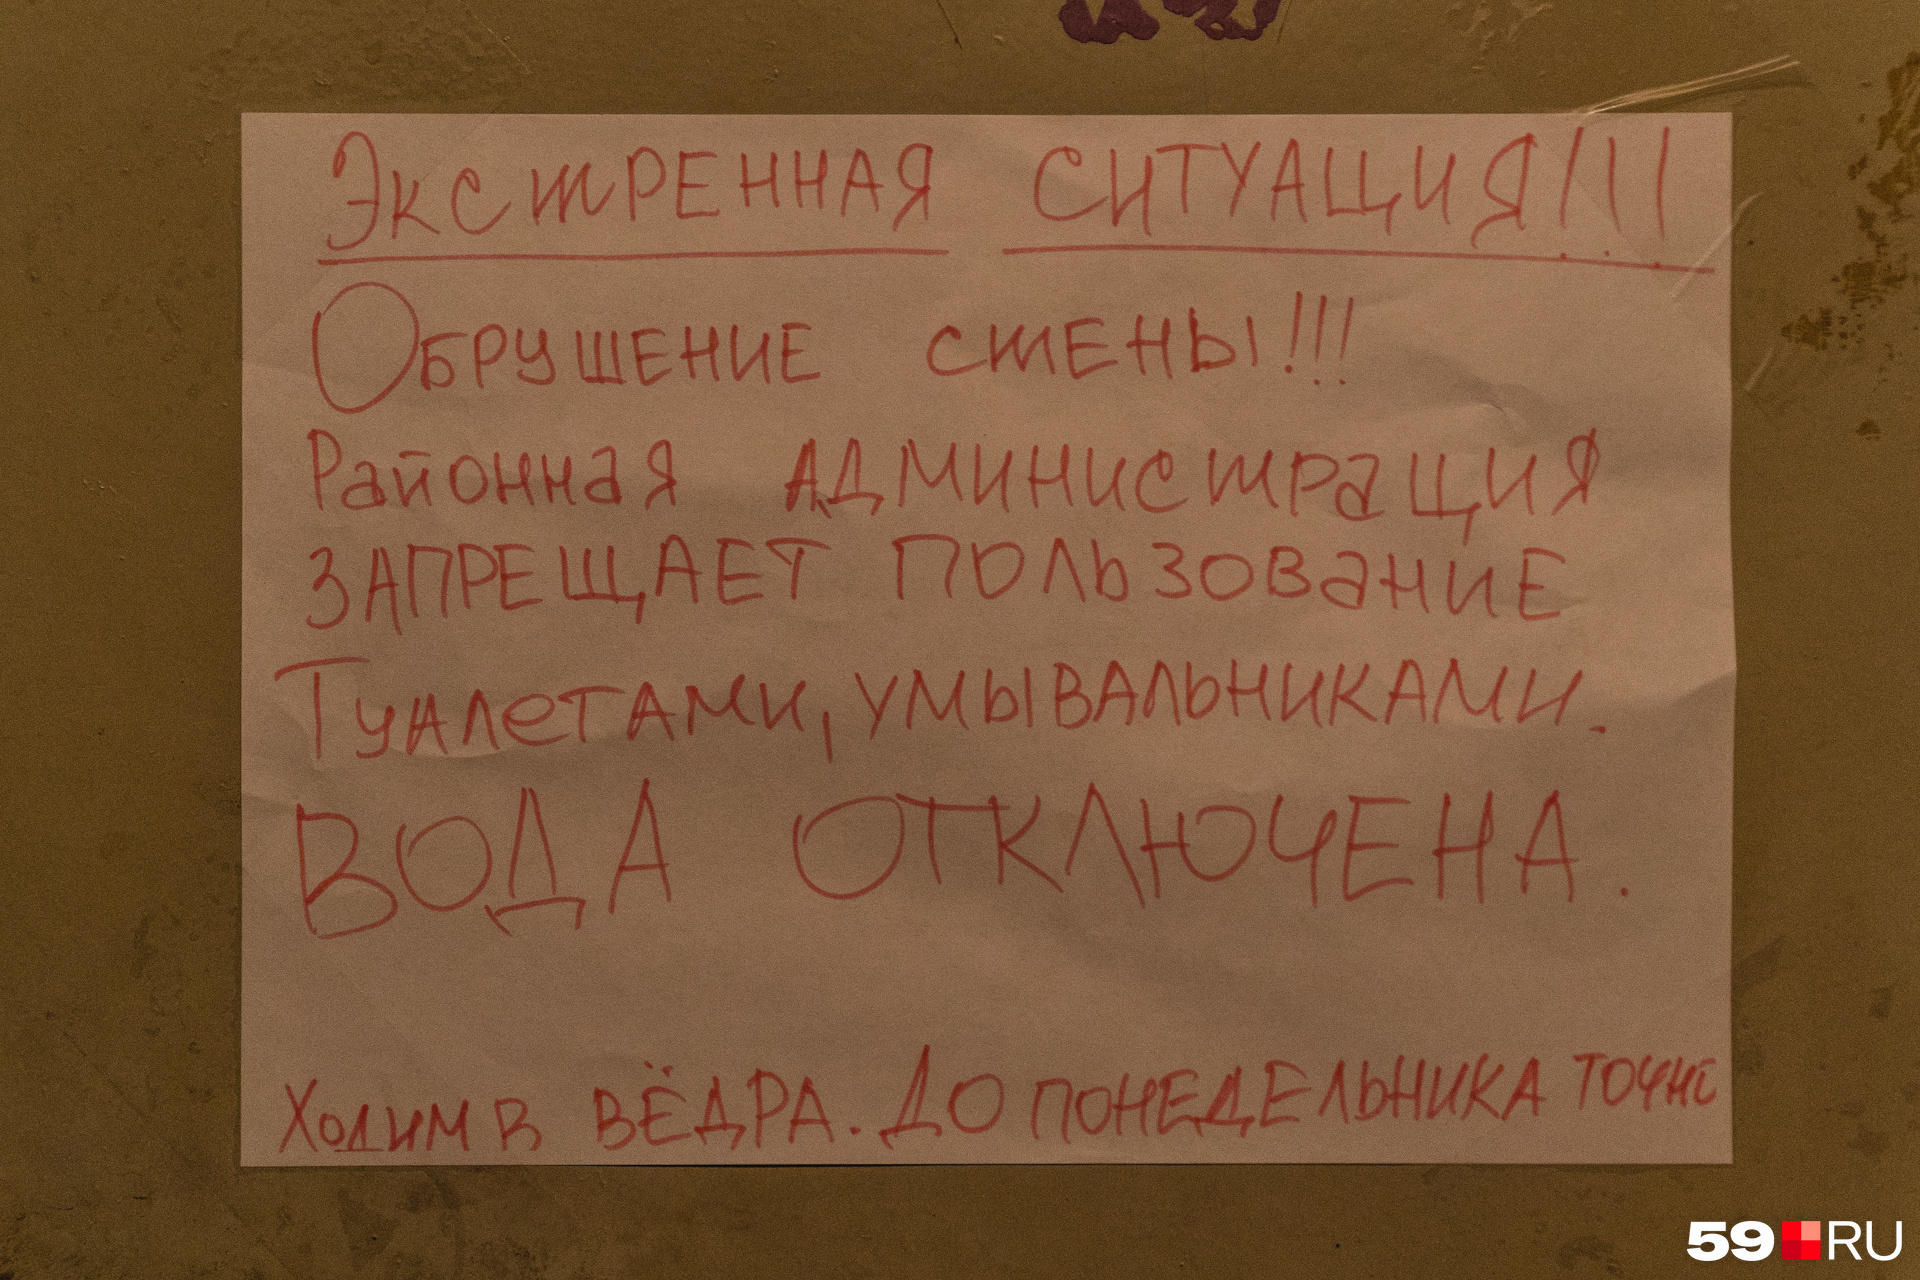 ЭКСТРЕННАЯ СИТУАЦИЯ!!!
ОБРУШЕНИЕ СТЕНЫ!!!
Районная АДМИНИСТРаЦИЯ
ЗАПРЕЩАЕТ ПОЛЬЗОВаНИЕ
ТУАЛеТАМИ, УМЫВАЛЬНИКАМИ.
ВОДА ОТКЛЮЧЕНА.
ХОДИМ В ВЁДРА. ДО ПОНЕДЕЛЬНИКА ТОЧНО
59.RU